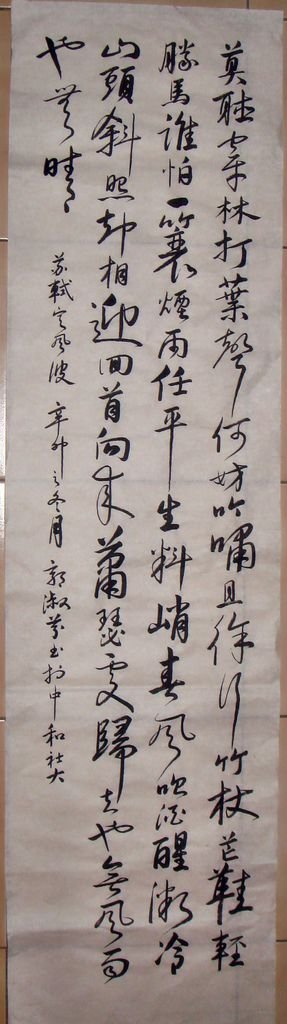 莫聴穿林打葉聲何妨吟嘯且徐行竹杖芒鞋輕
勝馬誰怕一簑煙雨任平生料峭春風吹酒醒微冷
山頭斜照却相迎回首向來蕭瑟處歸去也無風雨
也無晴
蘇軾定風波 辛卯之冬月 郭淑芬書於中和社大